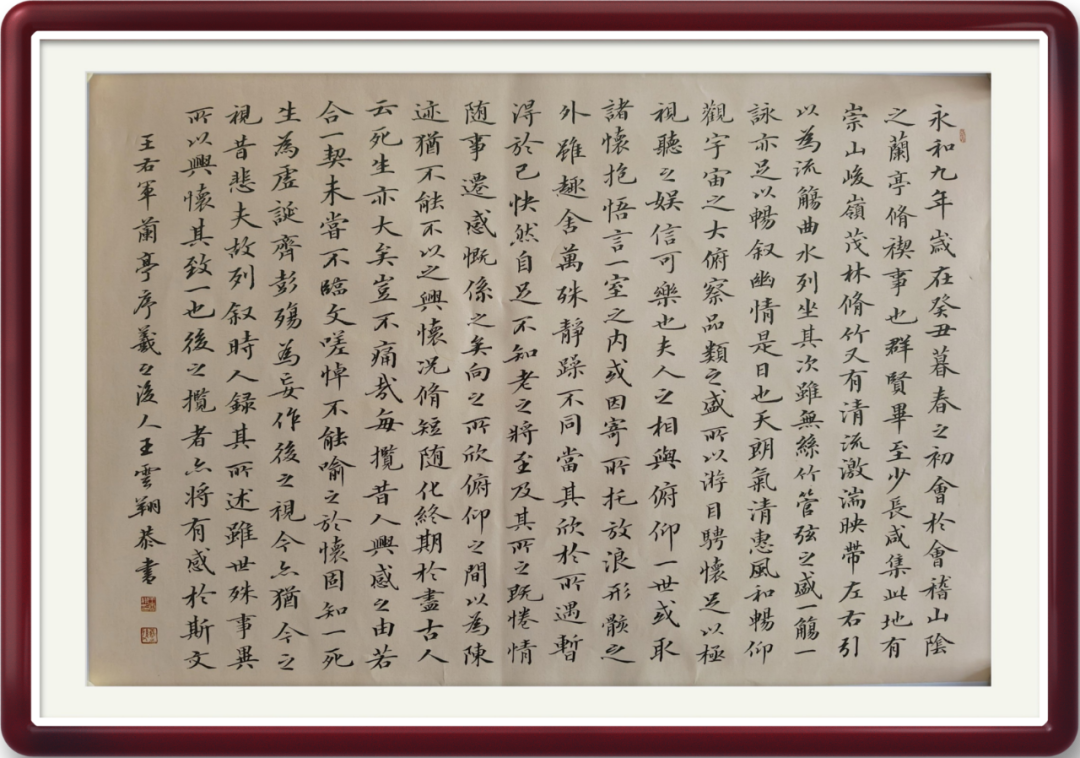 永和九年歲在癸丑暮春之初會於會稽山陰
之蘭亭脩禊事也群賢畢至少長咸集此地有
崇山峻嶺茂林脩竹又有清流激湍映帶左右引
以為流觴曲水列坐其次雖無絲竹管弦之盛一觴一
詠亦足以暢叙幽情是日也天朗氣清惠風和暢仰
觀宇宙之大俯察品類之盛所以游目騁懷足以極
視聽之娛信可樂也夫人之相與俯仰一世或取
諸懷抱悟言一室之内或因寄所托放浪形骸之
外雖趣舍萬殊靜躁不同當其欣於所遇暫
得於己快然自足不知老之將至及其所之既惓情
随事遷感慨係之矣向之所欣俯仰之間以為陳
迹猶不能不以之興懷况脩短随化終期於盡古人
云死生亦大矣豈不痛哉每攬昔人興感之由若
合一契未嘗不臨文嗟悼不能喻之於懷固知一死
生為虚誕齊彭殤為妄作後之視今亦猶今之
視昔悲夫故列叙時人録其所述雖世殊事異
所以興懷其致一也後之攬者亦將有感於斯文
王右軍蘭亭序羲之後人王雲翔恭書